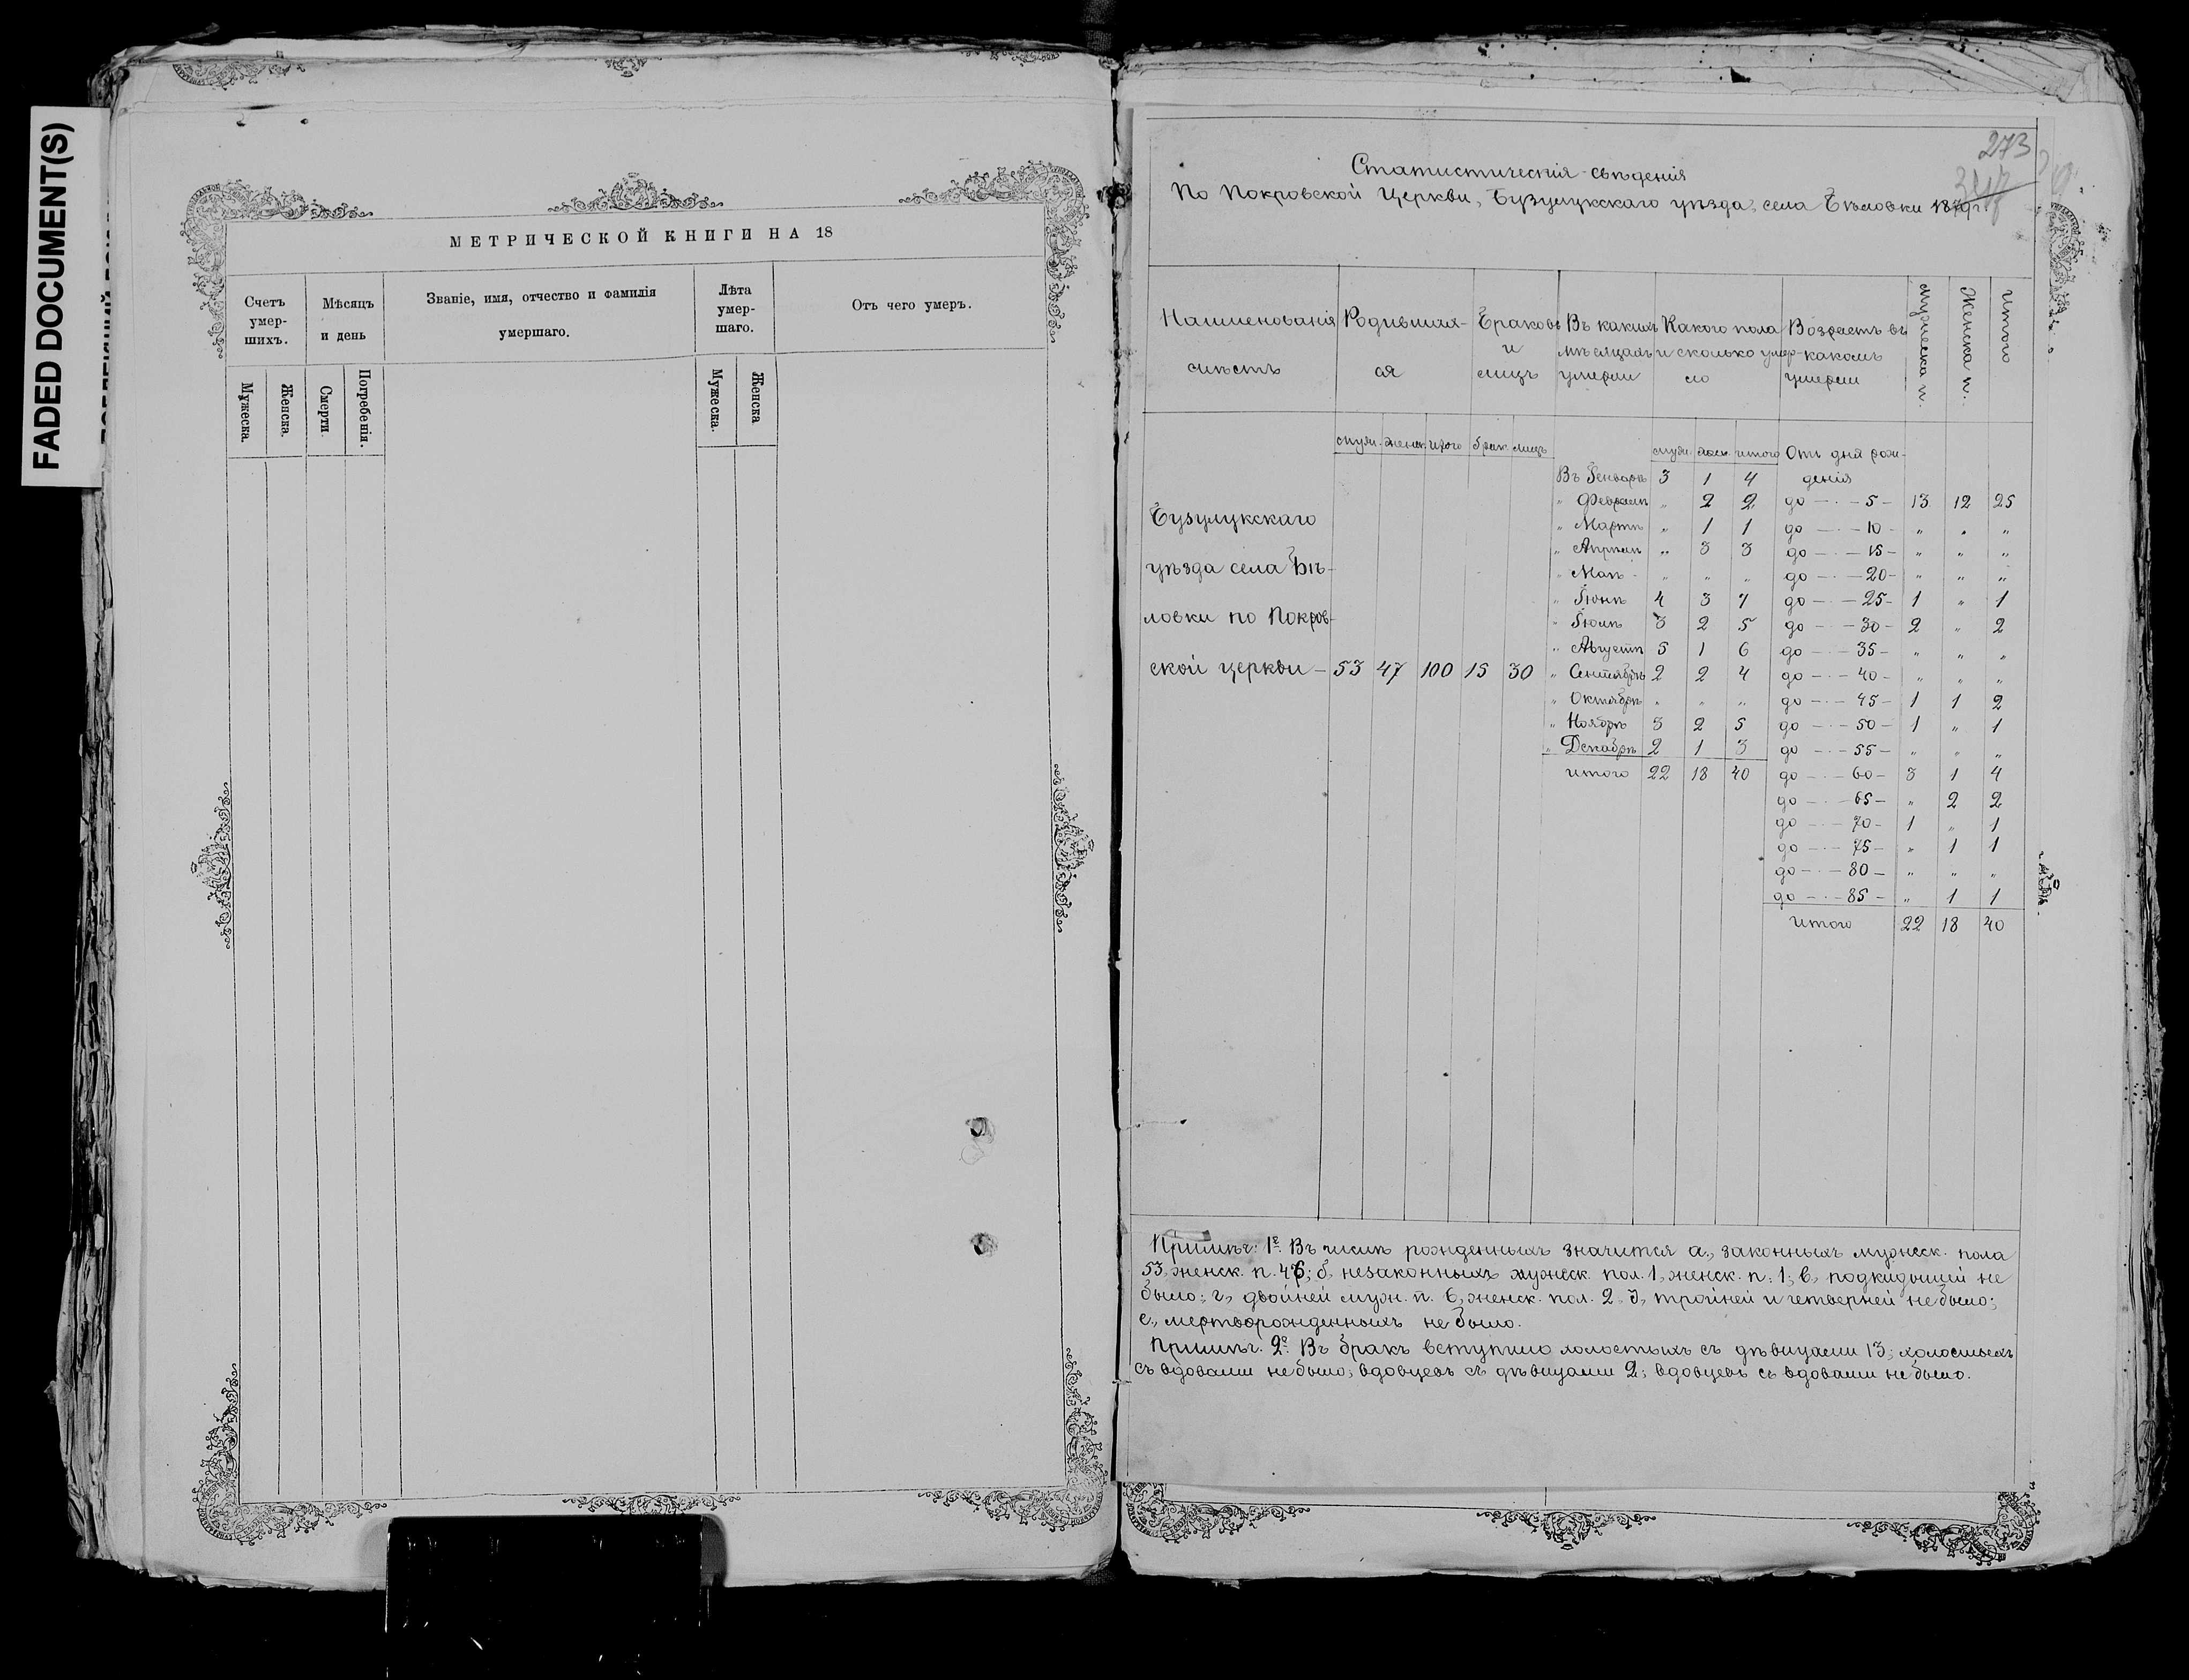 FADED DOCUMENT(S)
МЕТРИЧЕСКОЙ КНИГИ НА 18
Счетъ умер-шихъ.
Мѣсяцъ и день
Званіе, имя, отчество и фамилія умершаго.
Лѣта умер-шаго.
Отъ чего умеръ.
Мужеска.
Женска.
Смерти.
Погребенія.
Мужеска.
Женска
273
Статистическія свѣденія
По Покровской Церкви, Бузулукскаго уѣзда, села Бѣловки 1879 г.
Наименованія мѣстъ
Родившая-ся
Браковъ и лицъ
Въ какихъ мѣсяцахъ умерли
Какого пола и сколько умер-ло
Возрастъ въ какомъ умерли
Мужеска п.
Женска п.
Итого
муж. женск. итого брак. лицъ
муж. женс. итого Отъ дня рож-
Въ Генварѣ 3 1 4 денія
„ Февралѣ „ 2 2 до 5 13 12 25
Бузулукскаго
„ Мартѣ „ 1 1 до 10 „ „ „
„ Апрѣлѣ „ 3 3 до 15 „ „ „
уѣзда села Бѣ-
„ Маѣ „ „ „ до 20 „ „ „
„ Іюнѣ 4 3 7 до 25 1 „ 1
ловки по Покров-
„ Іюлѣ 3 2 5 до 30 2 „ 2
„ Августѣ 5 1 6 до 35 „ „ „
ской церкви – 53 47 100 15 30 „ Сентябрѣ 2 2 4 до 40 „ „ „
„ Октябрѣ „ „ „ до 45 1 1 2
„ Ноябрѣ 3 2 5 до 50 1 „ 1
„ Декабрѣ 2 1 3 до 55 „ „ „
итого 22 18 40 до 60 3 1 4
до 65 „ 2 2
до 70 1 „ 1
до 75 „ 1 1
до 80 „ „ „
до 85 „ 1 1
Итого 22 18 40
Примѣч: 1е. Въ числѣ рожденныхъ значится а., законныхъ мужеск. пола
53, женск. п. 46; б, незаконныхъ мужеск. пол. 1, женск. п. 1; в, подкидышей не
было; г, двойней муж. п. 6, женск. пол. 2. д, тройней и четверней не было;
е., мертворожденныхъ не было.
Примѣч. 2е. Въ бракъ вступило холостыхъ съ дѣвицами 13; холостыхъ
съ вдовами не было; вдовцевъ съ дѣвицами 2; вдовцевъ съ вдовами не было.